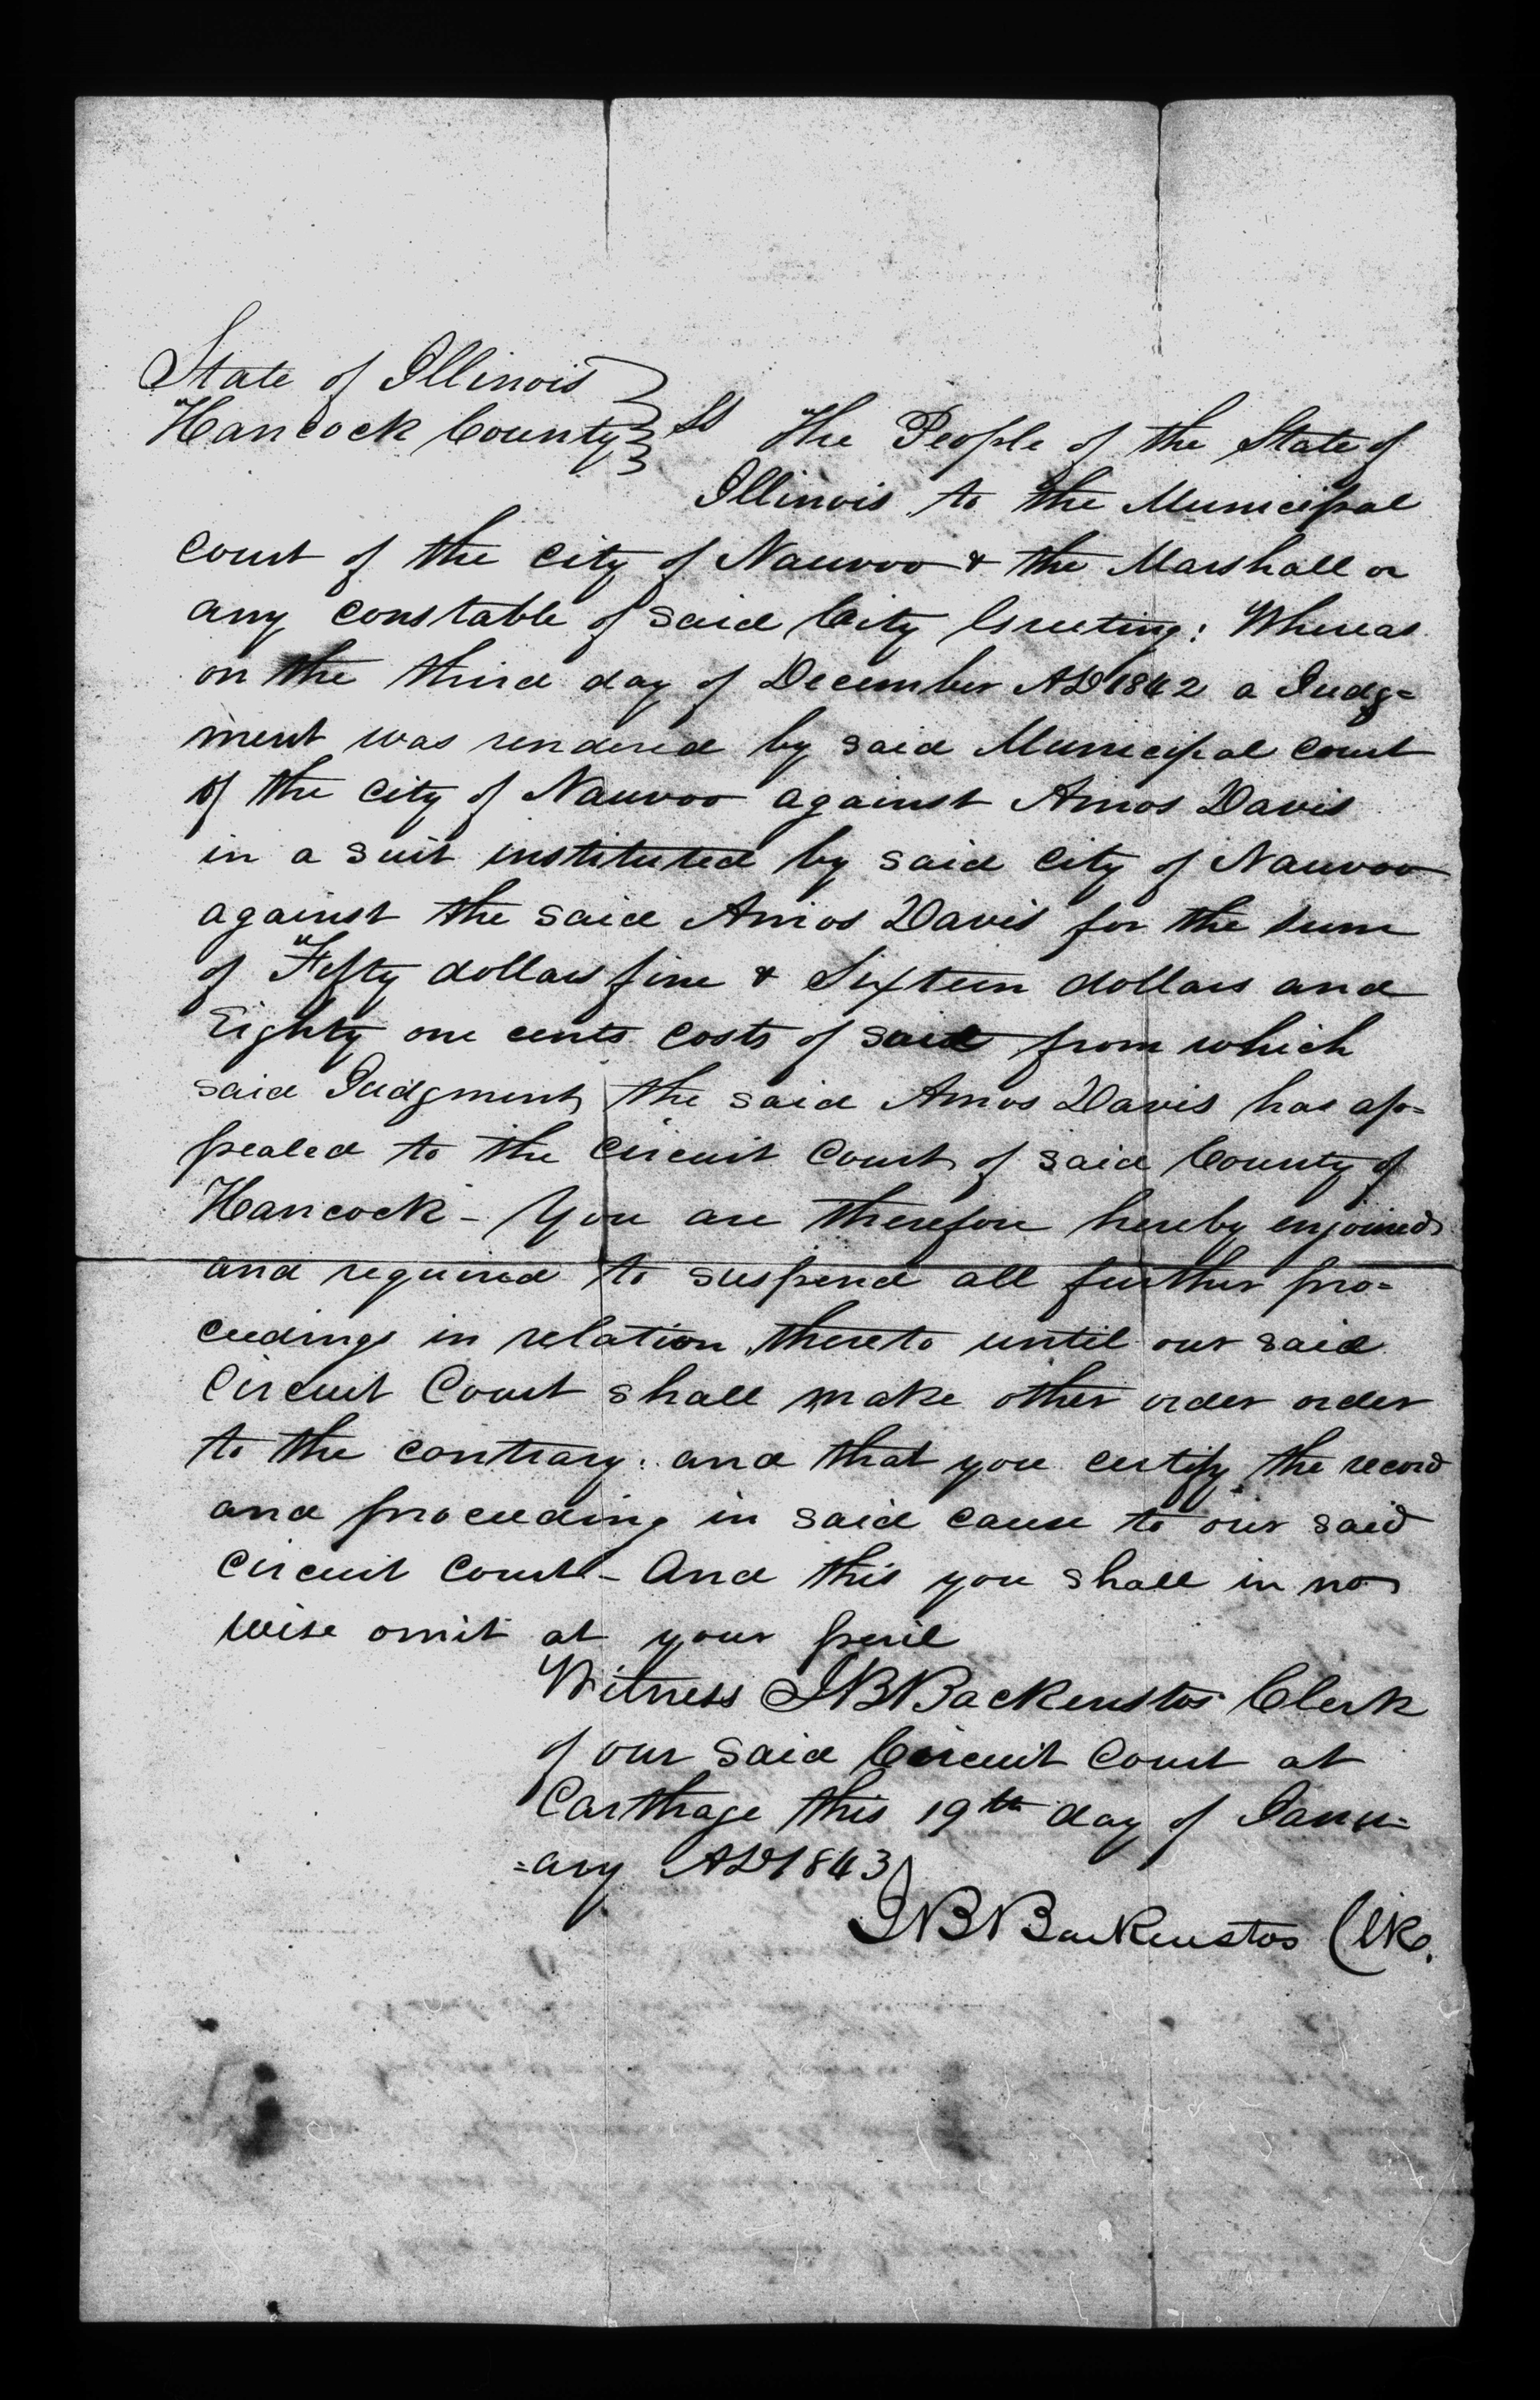 State of Illinois
Hancock County ss The People of the State of
Illinois to the Municipal
court of the city of Nauvoo & the Marshall or
any constable of said City Greeting: Whereas
on the third day of December AD 1842 a Judg=
ment was rendered by said Municipal court
of the city of Nauvoo against Amos Davis
in a suit instituted by said city of Nauvoo
against the said Amos Davis for the sum
of Fifty dollars fine & Sixteen dollars and
Eighty one cents costs of suit from which
said Judgment the said Amos Davis has ap=
pealed to the circuit Court of said County of
Hancock - You are therefore hereby enjoined
and required to suspend all further pro=
ceedings in relation thereto until our said
Circuit Court shall make other order order
to the contrary. and that you certify the record
and proceeding in said cause to our said
circuit court - And this you shall in no
wise omit at your peril
Witness J B Backenstos Clerk
of our said Circuit Court at
Carthage this 19th day of Janu=
=ary AD 1843
J B Backenstos Clk.